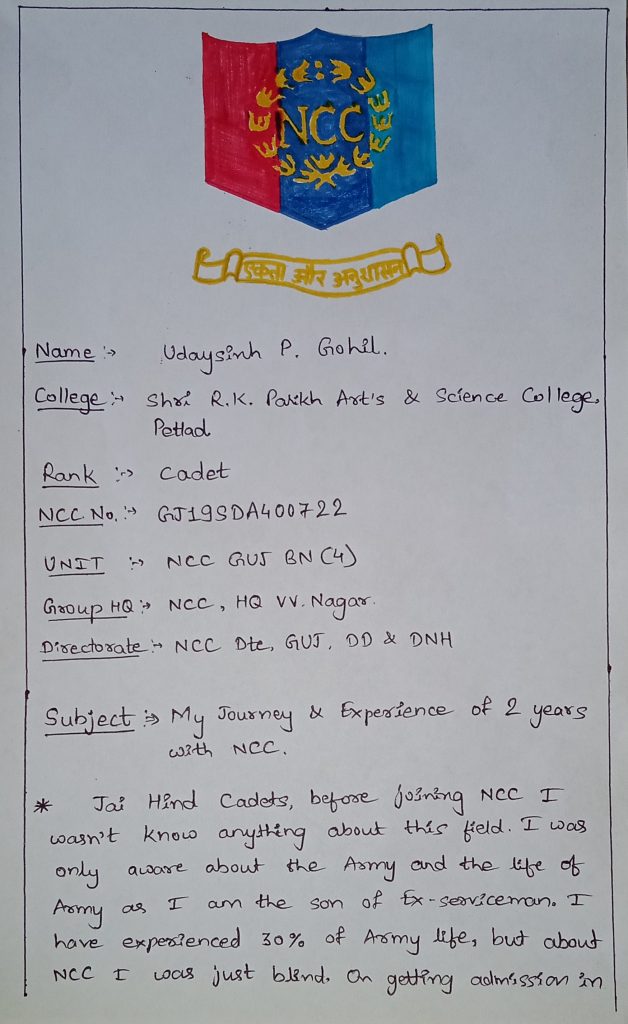 NCC
एकता और अनुशासन
Name :→ Udaysinh P. Gohil.
College :→ Shri R.K. Parikh Art's & Science College,
Petlad
Rank :→ Cadet
NCC No. :→ GJ19SDA400722
UNIT :→ NCC GUJ BN (4)
Group HQ :→ NCC, HQ VV. Nagar.
Directorate :→ NCC Dte, GUJ, DD & DNH
Subject :→ My Journey & Experience of 2 years
with NCC.
* Jai Hind Cadets, before joining NCC I
wasn't know anything about this field. I was
only aware about the Army and the life of
Army as I am the son of Ex-serviceman. I
have experienced 30% of Army life, but about
NCC I was just blind. On getting admission in